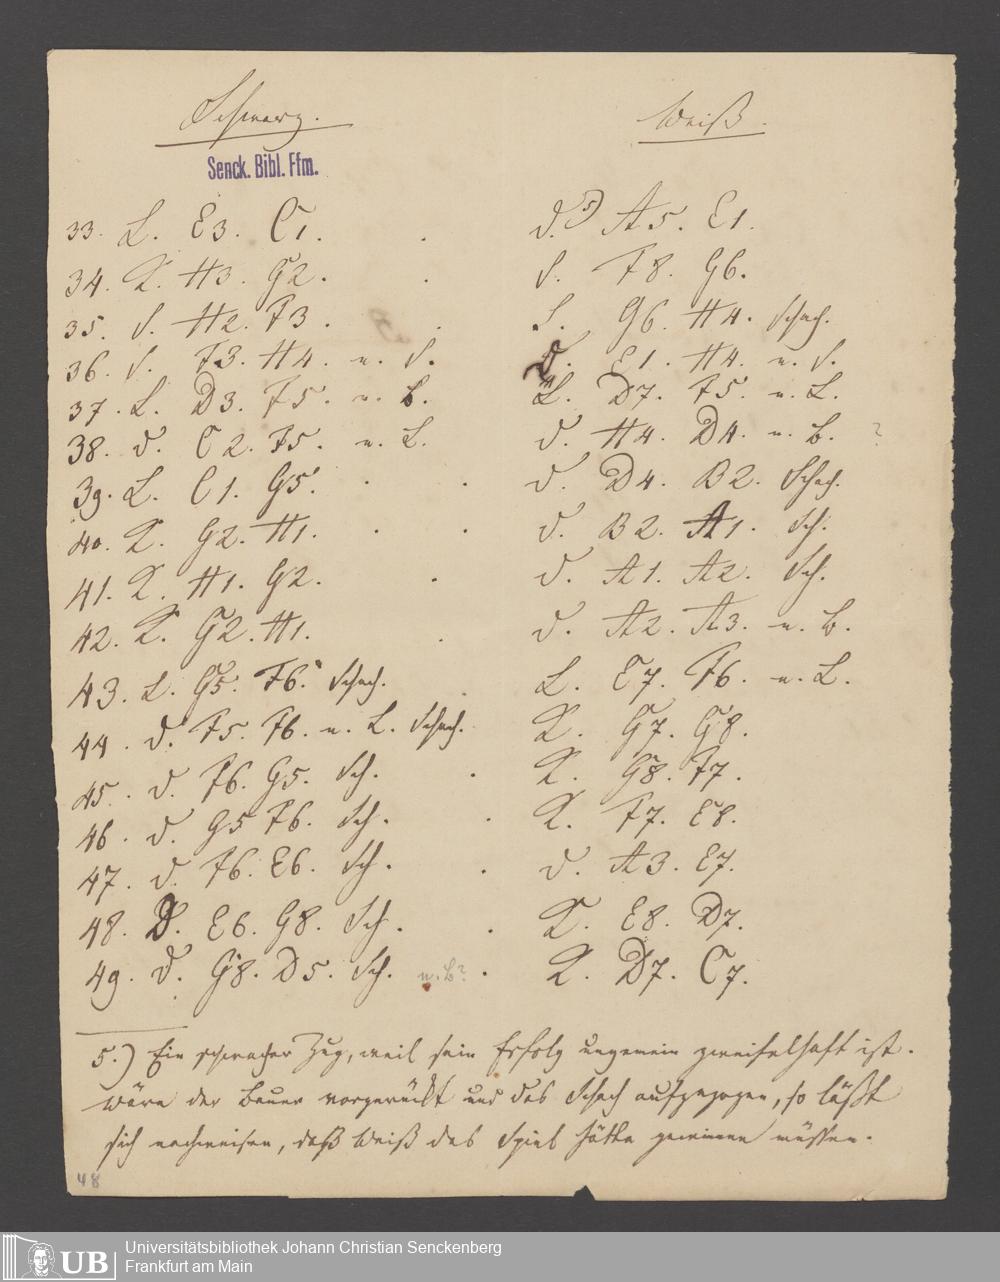 Schwarz. Weiß.
Senck. Bibl. Ffm.
33. L. E3. C1. . D. 5) A5. E1.
34. K. H3. G2. . S. F8. G6.
35. S. H2. F3. . S. G6. H4. Schach.
36. S. F3. H4. n. S. D. E1. H4. n. S.
37. L. D3. F5. n. B. L. D7. F5. n. L.
38. D. C2. F5. n. L. D. H4. D4. n. B. ?
39. L. C1. G5. . . D. D4. B2. Schach.
40. K. G2. H1. . . D. B2. A1. Sch.
41. K. H1. G2. . D. A1. A2. Sch.
42. K. G2. H1. . D. A2. A3. n. B.
43. L. G5. F6. Schach. . L. E7. F6. n. L.
44. D. F5. F6. n. L. Schach. K. G7. G8.
45. D. F6. G5. Sch. . K. G8. F7.
46. D. G5 F6. Sch. . K. F7. E8.
47. D. F6. E6. Sch. . D. A3. E7.
48. D. E6. G8. Sch. . K. E8. D7.
49. D. G8. D5. Sch. n. B? . K. D7. C7.
5.) Ein schwacher Zug, weil sein Erfolg ungemein zweifelhaft ist.
Wäre der Bauer vorgerückt und das Schach aufgezogen, so läßt
sich nachweisen, daß Weiß das Spiel hätte gewinnen müssen.
48
UB
Universitätsbibliothek Johann Christian Senckenberg
Frankfurt am Main